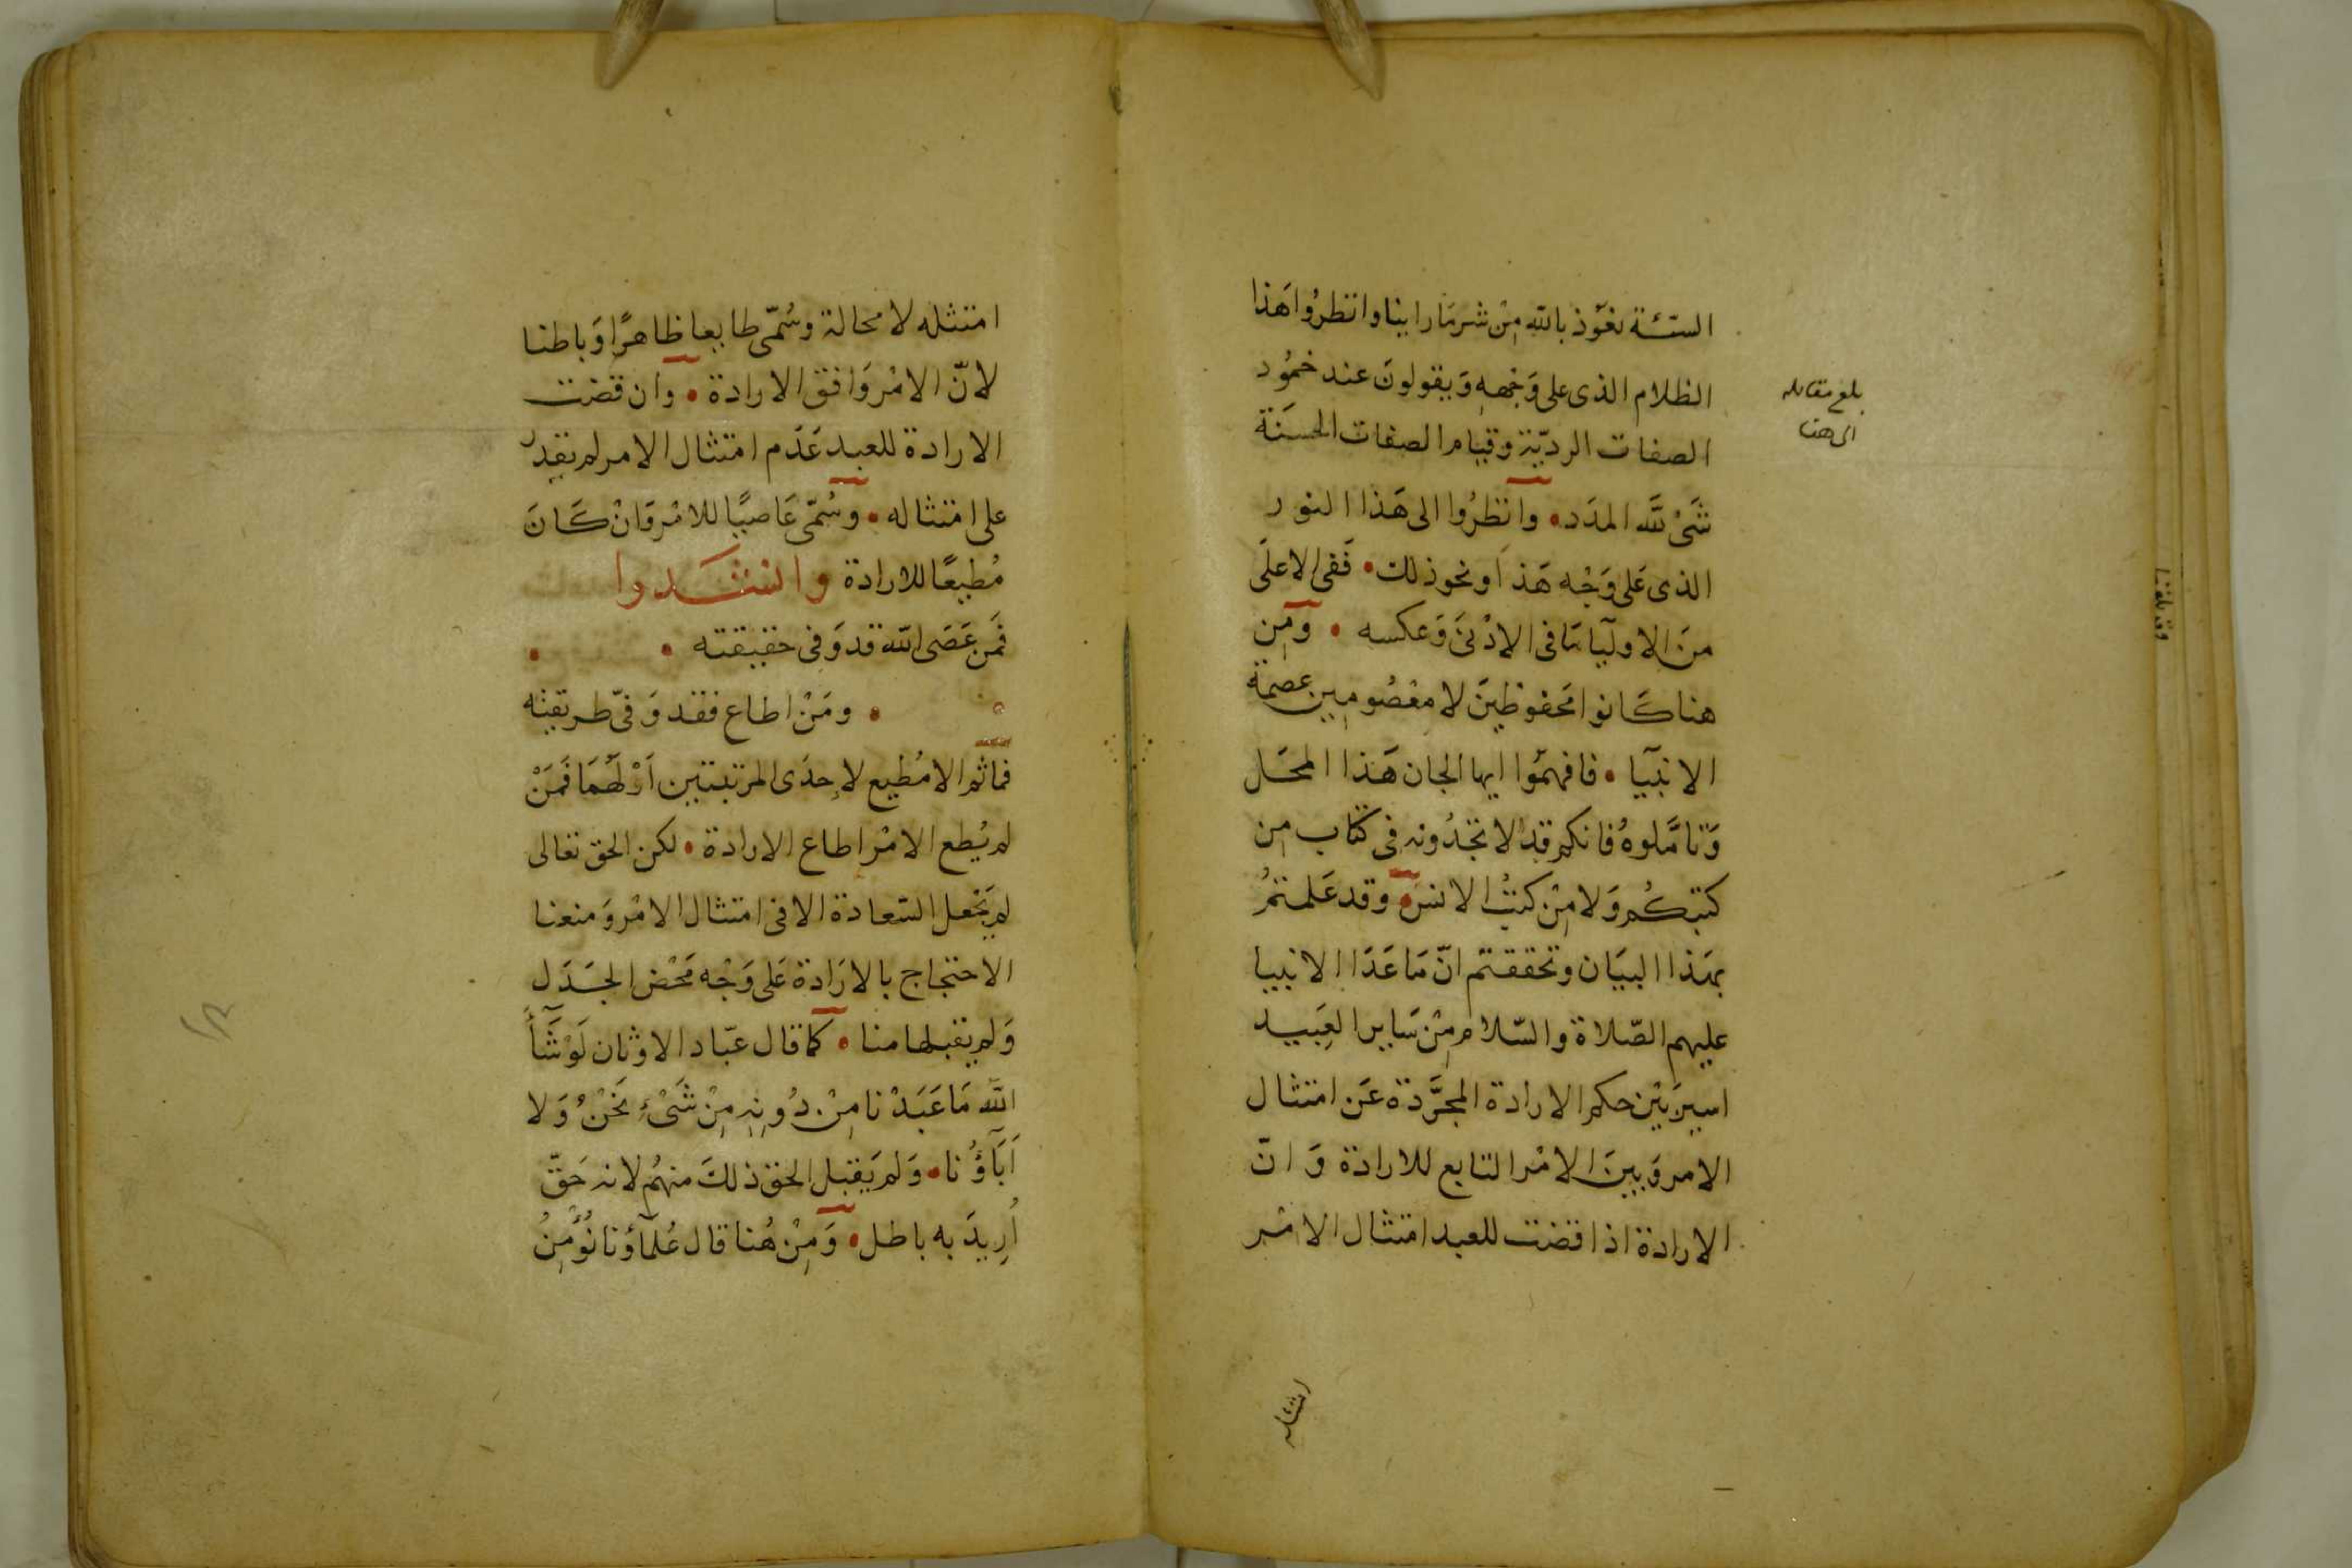 السيّئة نعوذ بالله مِنْ شر مَا راينا وانظرُوا هَذا
الظلام الذى على وَجْهِهِ وَيقولونَ عند خمُود
الصفات الرديّة وقيام الصفات الحسَنَة
شَىْ لله المدَد • وانظرُوا الى هَذا النور
الذى عَلى وَجْه هَذ اَو نحو ذلك • فَفى الاعلَى
منَ الاوليآ مَا فى الادْنىَ وَعكسه • ومِن
هنا كَانوا محَفوظينَ لا معْصُومين عصمة
الانبيآ • فافهمُوا ايها الجان هَذا المحَل
وَتأمَّلوهُ فانكم قد لا تجَدُونه فى كتاب مِن
كتبكُم وَلا مِنْ كتبْ الانس • وقد عَلمتمُ
بهَذا البيَان وتحققتم انّ مَا عَدَا الانبيا
عليهم الصّلاة والسّلام مِنْ سَاير العَبيد
اسير بَيْن حكم الارادة المجرَّدة عَن امتثال
الامر وَبينَ الامْر التابع للارادة وَ انّ
الارادة اذا قضت للعبد امتثال الامْر
امتثله
بلغ مقابله
الى هنا
امتثله لا محالة وسُمّى طايعا ظاهرًا وَباطنا
لانّ الامْر وَافق الارادة • وان قضت
الارادة للعبد عَدَم امتثال الامر لم يقدِر
على امتثاله • وسُمّى عَاصيًا للامْر وَانْ كَانَ
مُطيعًا للارادة وانشَدوا
فَمَن عَصَى الله قد وَفى حقيقته •
• ومَنْ اطاع فقد وَفىّ طريقته
فما ثم الا مُطيع لاِحدَى المرتبتين اَوْ لَهُمَا فَمَنْ
لم يُطع الامْر اطاع الارادة • لكن الحق تعالى
لم يَجْعل السّعادة الا فى امتثال الامْر وَمنعنا
الاحتجاج بالارَادة عَلى وَجْه مَحْض الجَدَل
وَلم يقبلها منا • كما قال عبّاد الاوثان لَوْ شَآءَ
الله مَا عَبَدْنا مِنْ دُونِهِ مِنْ شَىْءٍ نَحْنُ وَلا
اَبَآؤُنا • وَلم يَقبل الحق ذلكَ منهُم لانه حَقّ
اُرِيدَ به باطل • وَمِنْ هُنا قال عُلمآؤنا نُؤْمِنُ